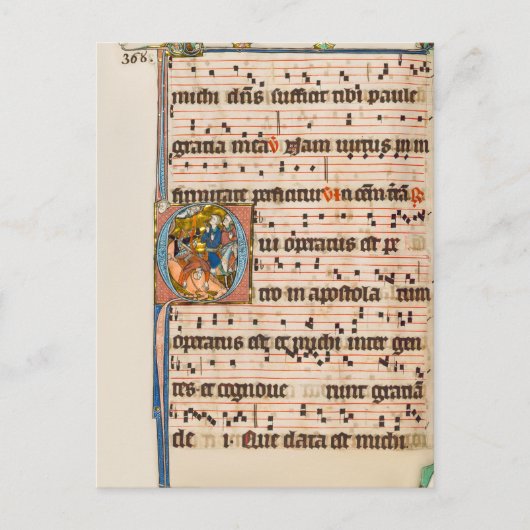 368.
michi dn̄s sufficit tibi paule
gratia mea v̄ Nam uirtus in in
firmitate perficitur v̄ In om̄ t̄rā R̄
Qui operatus est pe
tro in apostola tum
operatus est et michi inter gen
tes et cognoue runt gratiā
de i. Que data est michi